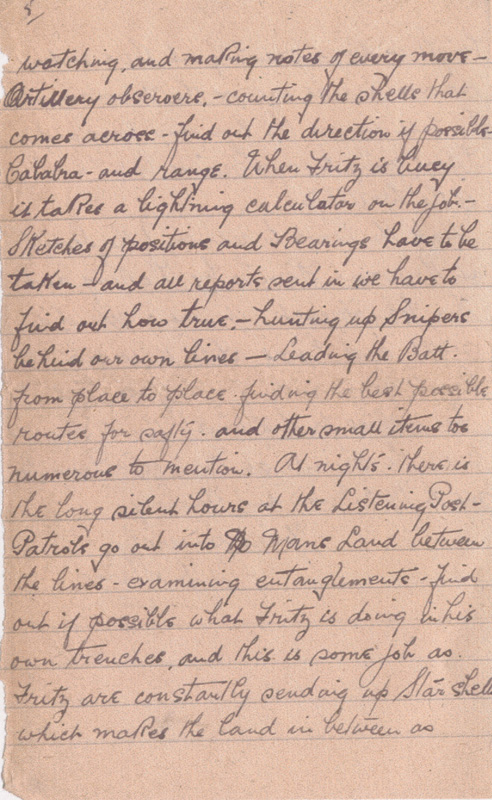 5/
watching, and making notes of every move-
Artillery observers, - counting the shells that
comes across - find out the direction if possible-
Calabra - and range. When Fritz is busy
it takes a lightning calculator on the job. -
Sketches of positions and Bearings have to be
taken - and all reports sent in we have to
find out how true, - hunting up Snipers
behind our own lines - Leading the Batt.
from place to place. finding the best possible
routes for safty. and other small items too
numerous to mention. At nights. there is
the long silent hours at the Listening Post-
Patrols go out into No Mans Land between
the lines - examining entanglements - find
out if possible what Fritz is doing in his
own trenches, and this is some job as.
Fritz are constantly sending up Star shells
which makes the land in between as